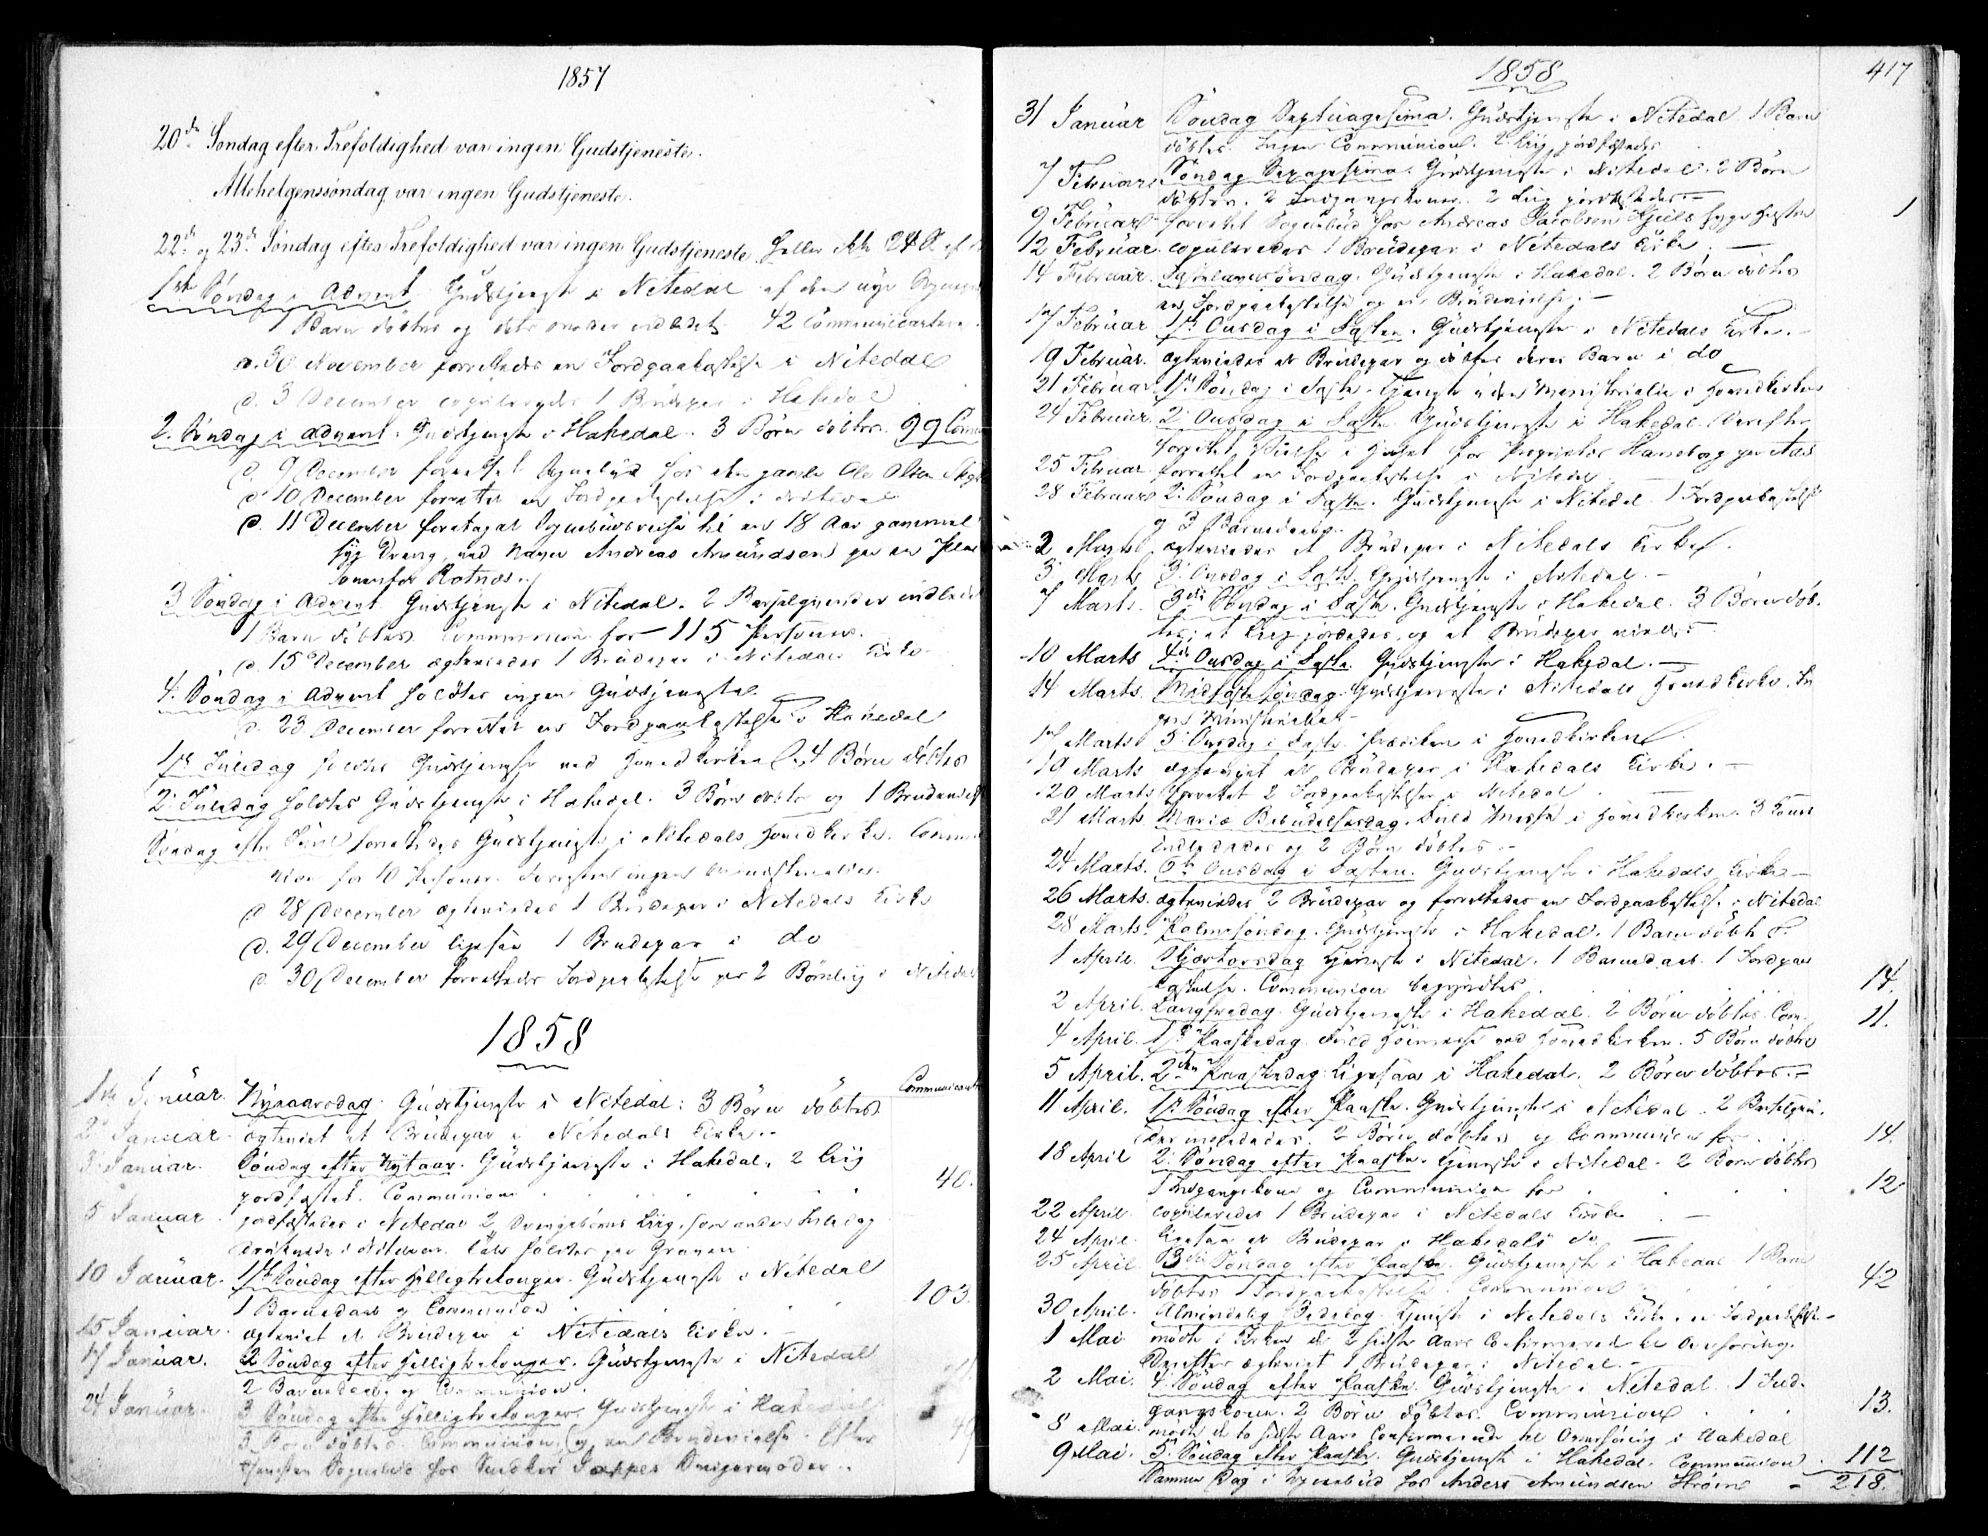 1857
20de Søndag efter Trefoldighed var ingen Gudstjeneste.
Allehelgenssøndag var ingen Gudstjeneste.
22de og 23de Søndag efter Trefoldighed var ingen Gudstjeneste heller ikke 24
1ste Søndag i Advent Gudstjeneste i Nitedal af den nye
1 Barn døbtes og 42 Communicanter
d. 30 November forrettedes en Jordpaakastelse i Nitedal
d. 3 December copuleredes 1 Brudepar i Hakedal
2. Søndag i Advent. Gudstjeneste i Hakedal. 3 Børn døbtes. 99
d. 9 December forrettet Sognebud hos den gamle Ole Olsen
d. 10 December forrettet en Jordpaakastelse i Nitedal
d. 11 December foretaget til en 18 Aar gammel
syg Dreng, ved Navn Andreas Amundsen paa en
Rotnæs.
3 Søndag i Advent Gudstjeneste i Nitedal. 2
1 Barn døbtes Communion for 115 Personer.
d. 15 December ægteviedes 1 Brudepar i Nitedals Kirke
4. Søndag i Advent holdtes ingen Gudstjeneste.
d. 23 December forrettet en Jordpaakastelse i Hakedal
1ste Juledag holdtes Gudstjeneste ved Hovedkirken 4 Børn døbtes
2. Juledag holdtes Gudstjeneste i Hakedal. 3 Børn døbtes og 1
Søndag efter Juul forrettedes Gudstjeneste i Nitedals Hovedkirke.
for 10 Personer. ingen
d 28 December ægteviedes 1 Brudepar i Nitedals Kirke
d. 29 December ligesaa 1 Brudepar i do
d. 30 December forrettedes Jordpaakastelse paa 2 Børnelig i Nitedal
1858
1ste Januar. Nyaarsdag. Gudstjeneste i Nitedal: 3 Børn døbtes
2 Januar. ægteviet et Brudepar i Nitedals Kirke.
3 Januar. Søndag efter Nytaar. Gudstjeneste i Hakedal. 2 Liig
jordfæstet. Communion 40.
5 Januar. jordfæstedes i Nitedal 2 Liig, som anden Juledag
holdtes paa Graven
10 Januar. 1ste Søndag efter Helligtrekonger. Gudstjeneste i Nitedal
1 Barnedaab og Communion 103.
15 Januar. ægteviet et Brudepar i Nitedals Kirke.
17 Januar. 2 Søndag efter Helligtrekonger. Gudstjeneste i Nitedal
2 Barnedaab og Communion.
24 Januar. 3 Søndag efter Helligtrekonger, Gudstjeneste i Hakedal
3 Børn døbtes. Communion, og en Brudevielse. Efter
Tjenesten Sognebud hos
1858
417
31 Januar Søndag Septuagesima. Gudstjeneste i Nitedal 1 Barn
døbtes. Ingen Communion. 2 Liig jordfæstedes
7 Februar Søndag Sexagesima. Gudstjeneste i Nitedal. 2 Børn
døbtes. 2 Indgangskoner. 2 Liig jordfæstedes
9 Februar forrettet Sognebud hos Andreas Jacobsen 1
12 Februar copuleredes 1 Brudepar i Nitedals Kirke.
14 Februar. Fastelavnssøndag. Gudstjeneste i Hakedal. 2 Børn døbtes
en Jordpaakastelse og en Brudevielse.
17 Februar 1ste Onsdag i Fasten. Gudstjeneste i Nitedals Kirke.
19 Februar. ægteviedes et Brudepar og døbtes deres Barn i do
21 Februar 1ste Søndag i Faste. Tjeneste uden Ministerialia i Hovedkirken
24 Februar. 2. Onsdag i Faste Gudstjeneste i Hakedal. Derefter
forrettet Vielse i Huset for Proprietær
25 Februar. forrettet en Jordpaakastelse i Nitedal
28 Februar 2. Søndag i Faste. Gudstjeneste i Nitedal 1 Jordpaakastelse
og 3 Barnedaab.
2 Marts ægteviedes et Brudepar i Nitedals Kirke.
3 Marts 3. Onsdag i Faste. Gudstjeneste i Nitedal.
7 Marts. 3die Søndag i Faste. Gudstjeneste i Hakedal. 3 Børn døb-
tes; et Liig jordedes, og et Brudepar viedes
10 Marts 4de Onsdag i Faste. Gudstjeneste i Hakedal.
14 Marts. Midfastesøndag. Gudstjeneste i Nitedals Hovedkirke. In
gen Ministerialia
17 Marts 5. Onsdag i Faste. Præken i Hovedkirken.
19 Marts ægteviet et Brudepar i Hakedals Kirke.
20 Marts forrettet 2 Jordpaakastelser i Nitedal
21 Marts Mariæ Bebudelsesdag. Fuld Messe i Hovedkirken. 3 Koner
indlededes og 2 Børn døbtes.
24 Marts. 6te Onsdag i Fasten. Gudstjeneste i Hakedals Kirke
26 Marts. ægteviedes 2 Brudepar og forrettedes en Jordpaakastelse i Nitedal
28 Marts. Palmesøndag. Gudstjeneste i Hakedal. 1 Barn døbtes.
1 April. Skjærtorsdag Tjeneste i Nitedal. 1 Barnedaab. 1 Jordpaa
kastelse. Communion begyndtes 14.
2 April. Langfredag. Gudstjeneste i Hakedal. 2 Børn døbtes. Com. 11.
4 April. 1ste Paaskedag. Fuld Høimesse ved Hovedkirken. 5 Børn døbtes
5 April. 2den Paaskedag. Ligesaa i Hakedal. 2 Børn døbtes.
11 April. 1ste Søndag efter Paaske. Gudstjeneste i Nitedal. 2
2 Børn døbtes og Communion for 14.
18 April 2. Søndag efter Paaske. Tjeneste i Nitedal. 2 Børn døbtes
1 Indgangskone og Communion for 12
22 April. copuleredes 1 Brudepar i Nitedals Kirke
24 April. ligesaa et Brudepar i Hakedals do
25 April 3die Søndag efter Paaske. Gudstjeneste i Hakedal 1 Barn
døbtes 1 Jordpaakastelse. Communion 42
30 April. Almindelig Bededag. Tjeneste i Nitedals Kirke. en Jordpaakastelse
1 Mai mødte i Kirken de 2 sidste Aars Confirmerede til Overhøring.
Derefter ægteviet 1 Brudepar i Nitedal.
2 Mai. 4. Søndag efter Paaske. Gudstjeneste i Nitedal 1 Ind-
gangskone. 2 Børn døbtes. Communion 13.
8 Mai mødte de to sidste Aars Confirmerede til Overhøring i Hakedal
9 Mai. 5. Søndag efter Paaske. Gudstjeneste i Hakedal. Communion 112
Samme Dag i Sognebud hos Anders Amundsen Strøm 218.